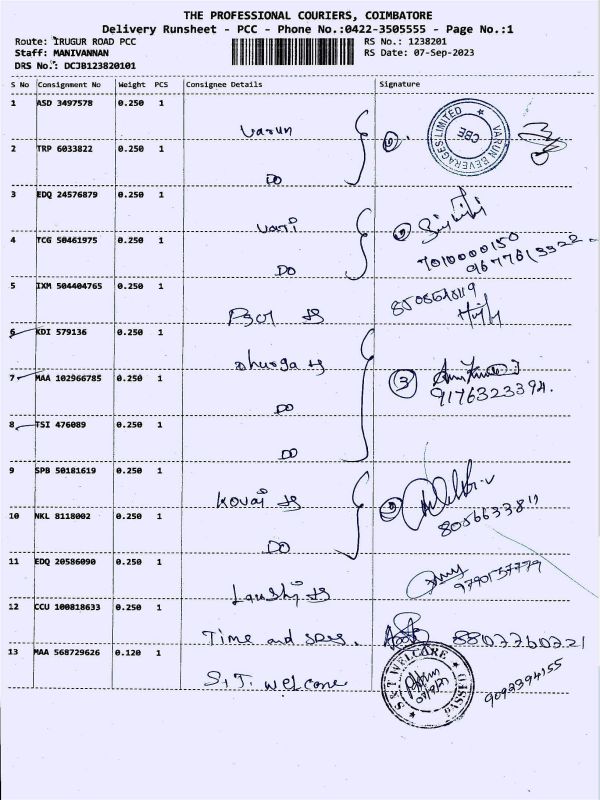 THE PROFESSIONAL COURIERS, COIMBATORE
Delivery Runsheet - PCC - Phone No.:0422-3505555 - Page No.:1
Route: IRUGUR ROAD PCC
Staff: MANIVANNAN
DRS No.: DCJB123820101
RS No.: 1238201
RS Date: 07-Sep-2023
S No Consignment No Weight PCS Consignee Details Signature
1 ASD 3497578 0.250 1 Varun
VARUN BEVERAGES LIMITED
CBE
2 TRP 6033822 0.250 1 DO
3 EDQ 24576879 0.250 1
4 TCG 50461975 0.250 1 DO
7010000150
5 IXM 504404765 0.250 1
6 KDI 579136 0.250 1 Dhurga
7 MAA 102966785 0.250 1 DO 3
9176323394.
8 TSI 476089 0.250 1 DO
9 SPB 50181619 0.250 1 Kovai
10 NKL 8118002 0.250 1 DO
11 EDQ 20586090 0.250 1
12 CCU 100818633 0.250 1 Time and
13 MAA 568729626 0.120 1 S.T. welcome
S&T WELCARE